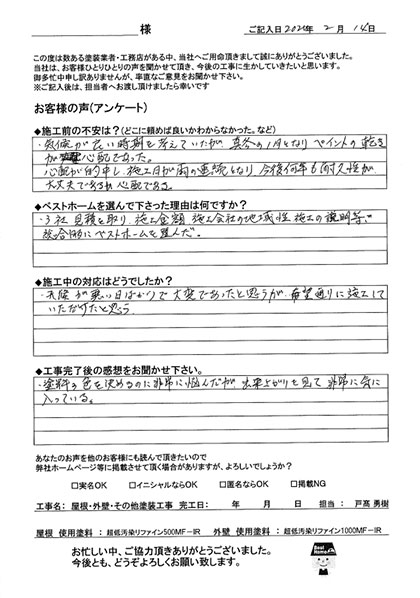 様
ご記入日 2020年 2月 14日
この度は数ある塗装業者・工務店がある中、当社へご用命頂きまして誠にありがとうございました。
当社は、お客様ひとりひとりの声を聞かせて頂き、今後の工事に生かしていきたいと思います。
御多忙中申し訳ありませんが、率直なご意見をお聞かせ下さい。
※ご記入後は、担当者へお渡し頂けましたら幸いです
お客様の声(アンケート)
◆施工前の不安は?(どこに頼めば良いかわからなかった。など)
・気候が良い時期を考えていたが、真冬の1月となりペイントの乾きが心配であった。
心配が的中し、施工日が雨の連続となり今後何年も耐久性が
大丈夫であるか心配である。
◆ベストホームを選んで下さった理由は何ですか?
・3社見積を取り、施工金額、施工会社の地域性、施工の説明等、
総合的にベストホームを選んだ。
◆施工中の対応はどうでしたか?
・天候が悪い日ばかりで大変であったと思うが、希望通りに施工して
いただけたと思う
◆工事完了後の感想をお聞かせ下さい。
・塗料の色を決めるのに非常に悩んだが、出来上がりを見て非常に気に
入っている。
あなたのお声を他のお客様にも読んで頂きたいので
弊社ホームページ等に掲載させて頂く場合がありますが、よろしいでしょうか?
□実名OK □イニシャルならOK □匿名ならOK □掲載NG
工事名: 屋根・外壁・その他塗装工事 完工日: 年 月 日 担当: 戸高 勇樹
屋根 使用塗料: 超低汚染リファイン500MF-IR 外壁 使用塗料: 超低汚染リファイン1000MF-IR
お忙しい中、ご協力頂きありがとうございました。
今後とも、どうぞよろしくお願い致します。
Best Home